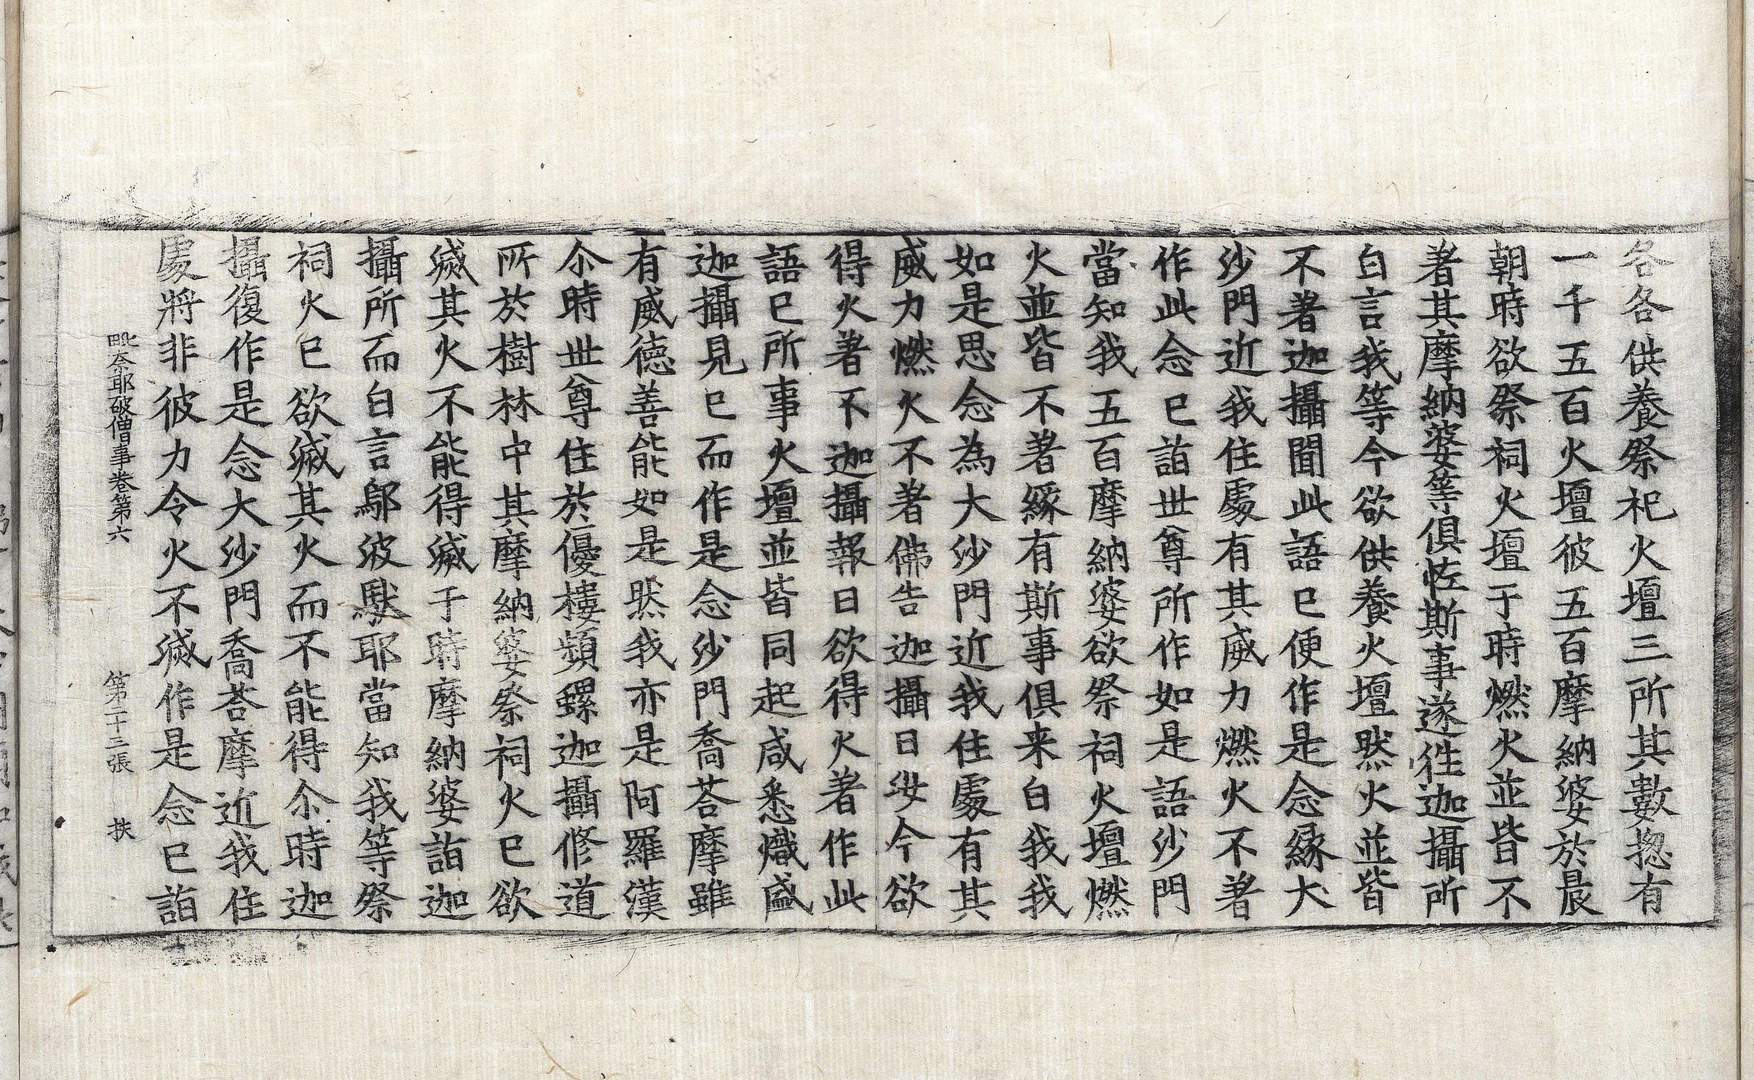 各各供養祭祀火壇三所其數揔有
一千五百火壇彼五百摩納婆於晨
朝時欲祭祠火壇于時燃火並皆不
著其摩納婆等俱恠斯事遂徃迦攝所
白言我等今欲供養火壇然火並皆
不著迦攝聞此語已便作是念緣大
沙門近我住處有其威力燃火不著
作此念已詣世尊所作如是語沙門
當知我五百摩納婆欲祭祠火壇燃
火並皆不著緣有斯事俱来白我我
如是思念為大沙門近我住處有其
威力燃火不著佛告迦攝曰汝今欲
得火著不迦攝報曰欲得火著作此
語已所事火壇並皆同起咸悉熾盛
迦攝見已而作是念沙門喬荅摩雖
有威德善能如是然我亦是阿羅漢
尒時世尊住於優樓頻螺迦攝修道
所於樹林中其摩納婆祭祠火已欲
滅其火不能得滅于時摩納婆詣迦
攝所而白言鄔波馱耶當知我等祭
祠火已欲滅其火而不能得尒時迦
攝復作是念大沙門喬荅摩近我住
處將非彼力令火不滅作是念已詣
毗奈耶破僧事卷第六 第二十三張 扶